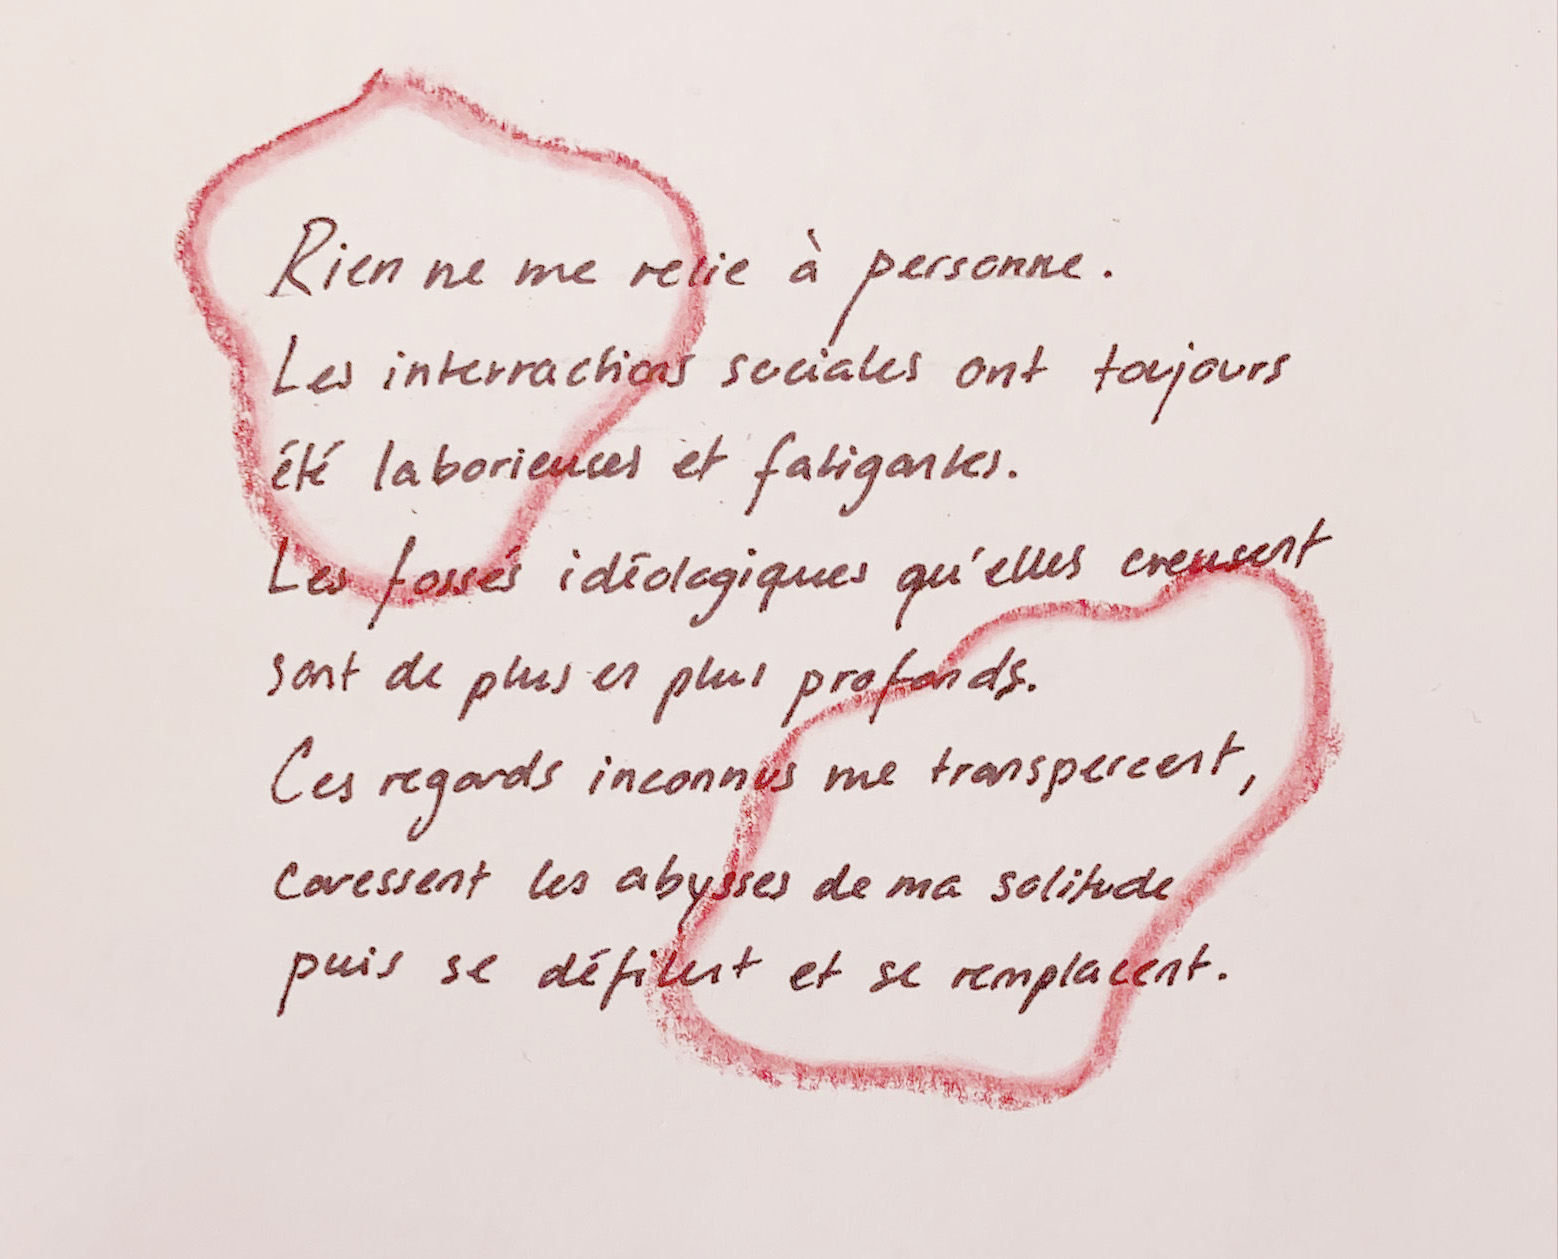 Rien ne me relie à personne.
Les interractions sociales ont toujours
été laborieuses et fatigantes.
Les fossés idéologiques qu'elles creusent
sont de plus en plus profonds.
Ces regards inconnus me transpercent,
caressent les abysses de ma solitude
puis se défilent et se remplacent.